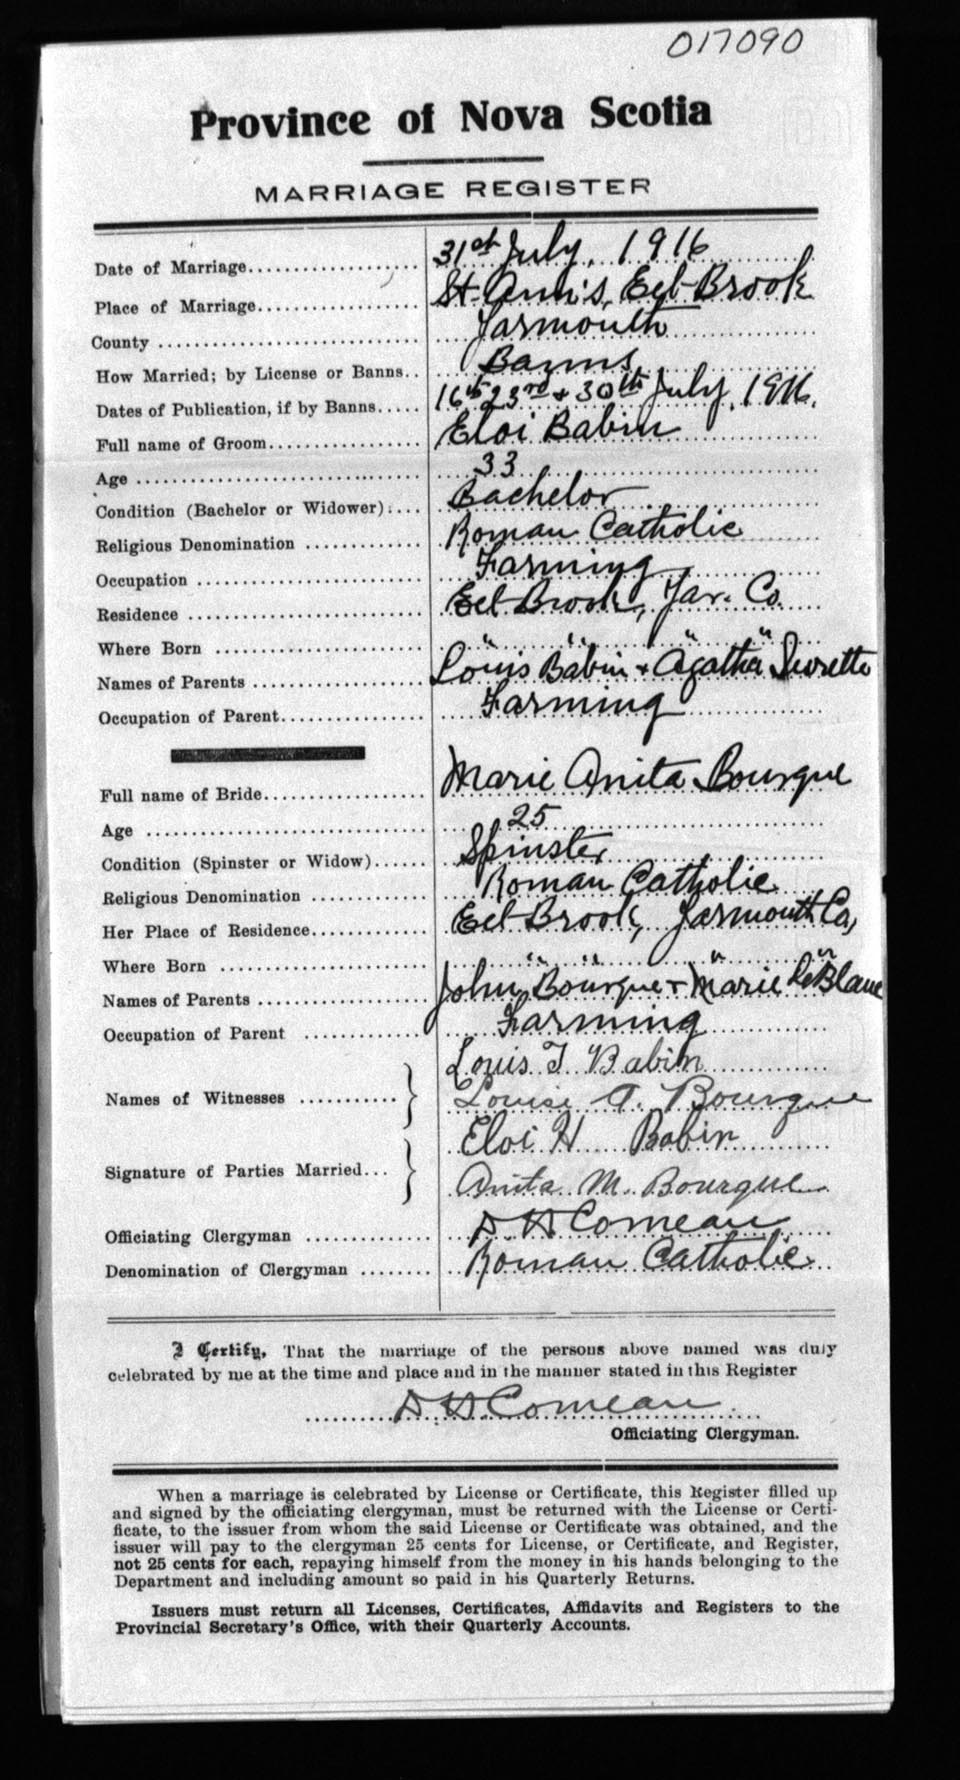 017090
Province of Nova Scotia
MARRIAGE REGISTER
Date of Marriage 31st July, 1916
Place of Marriage St. Ann's, Eel Brook
County Yarmouth
How Married; by License or Banns Banns
Dates of Publication, if by Banns 16th 23rd & 30th July, 1916.
Full name of Groom Eloi Babin
Age 33
Condition (Bachelor or Widower) Bachelor
Religious Denomination Roman Catholic
Occupation Farming
Residence Eel Brook, Yar. Co.
Where Born " " " "
Names of Parents Louis Babin & Agatha Surette
Occupation of Parent Farming
Full name of Bride Marie Anita Bourque
Age 25
Condition (Spinster or Widow) Spinster
Religious Denomination Roman Catholic
Her Place of Residence Eel Brook, Yarmouth Co,
Where Born " " " "
Names of Parents John Bourque & Marie LeBlanc
Occupation of Parent Farming
Louis T Babin
Names of Witnesses Louise A. Bourque
Eloi H Babin
Signature of Parties Married Anita M. Bourque
Officiating Clergyman D. H Comeau
Denomination of Clergyman Roman Catholic
I Certify, That the marriage of the persons above named was duly
celebrated by me at the time and place and in the manner stated in this Register
D. H. Comeau
Officiating Clergyman.
When a marriage is celebrated by License or Certificate, this Register filled up
and signed by the officiating clergyman, must be returned with the License or Certi-
ficate, to the issuer from whom the said License or Certificate was obtained, and the
issuer will pay to the clergyman 25 cents for License, or Certificate, and Register,
not 25 cents for each, repaying himself from the money in his hands belonging to the
Department and including amount so paid in his Quarterly Returns.
Issuers must return all Licenses, Certificates, Affidavits and Registers to the
Provincial Secretary's Office, with their Quarterly Accounts.